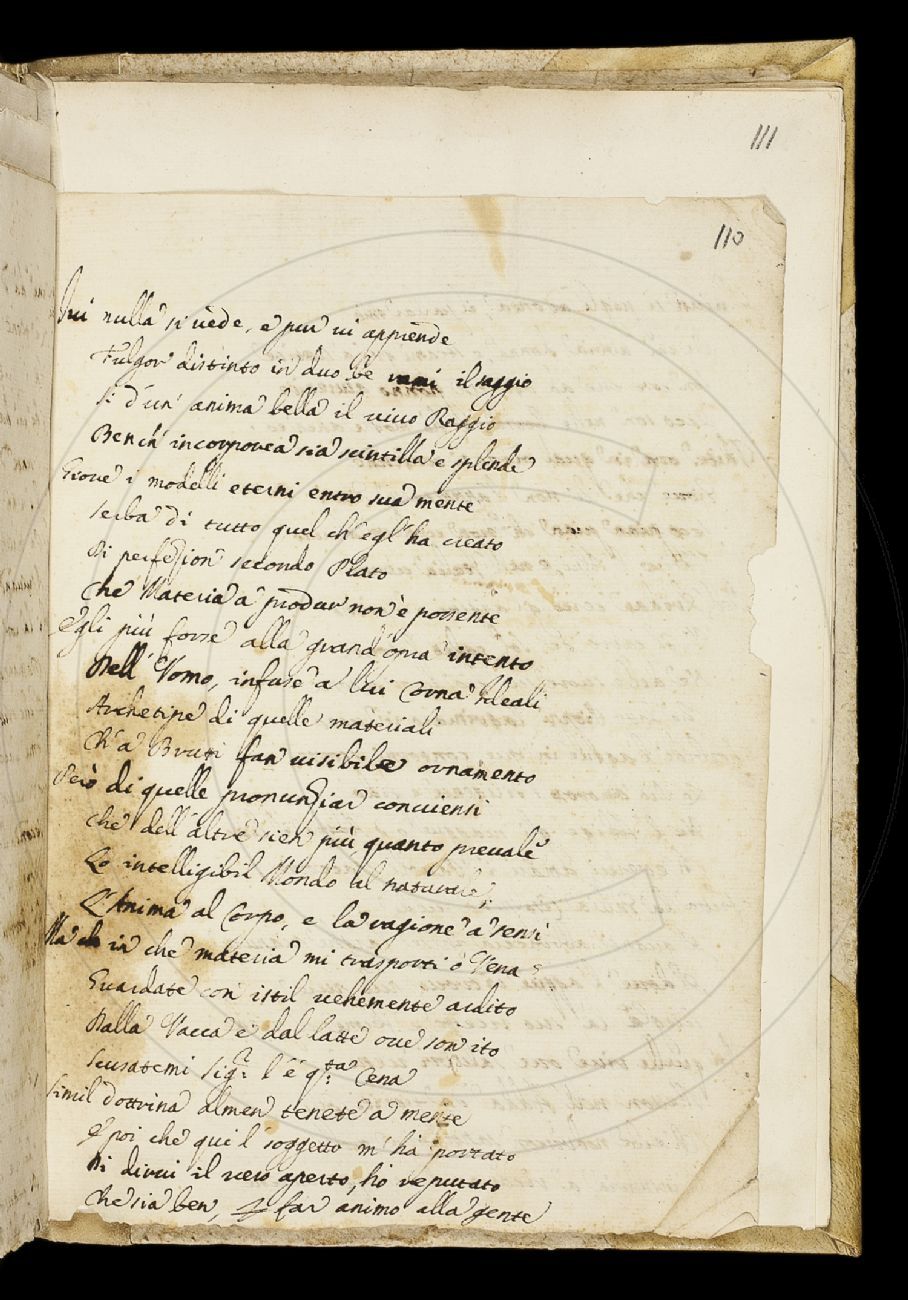 111
110
Qui nulla si uede, e pur ui apprende
Fulgor distinto in duo be rami il saggio
Si d'un' anima bella il uiuo Raggio
Bench' incorporea sia scintilla e splende
Gioue i modelli eterni entro sua mente
serba di tutto quel ch'egl' ha creato
Di perfezion secondo Plato
Che Materia a produr non è possente
Egli più forse alla grand'opra intento
Dell' Vomo, infuse a lui Corna Ideali
Archetipe di quelle materiali
Ch'a Bruti fan uisibile ornamento
Però di quelle pronunziar conuiensi
Che dell'altre sien più quanto preuale
Lo intelligibil Mondo al naturale,
L'Anima al Corpo, e la ragione a sensi
Ma in che materia mi trasporti ò Vena
Guardate con istil uehemente ardito
Dalla Vacca e dal latte oue son ito
scusatemi sig.r l'è q.ta Cena
Simil dottrina almen tenete a mente
E poi che qui l' soggetto m'ha portato
Di dirui il uero aperto, ho reputato
Che sia ben, far animo alla gente